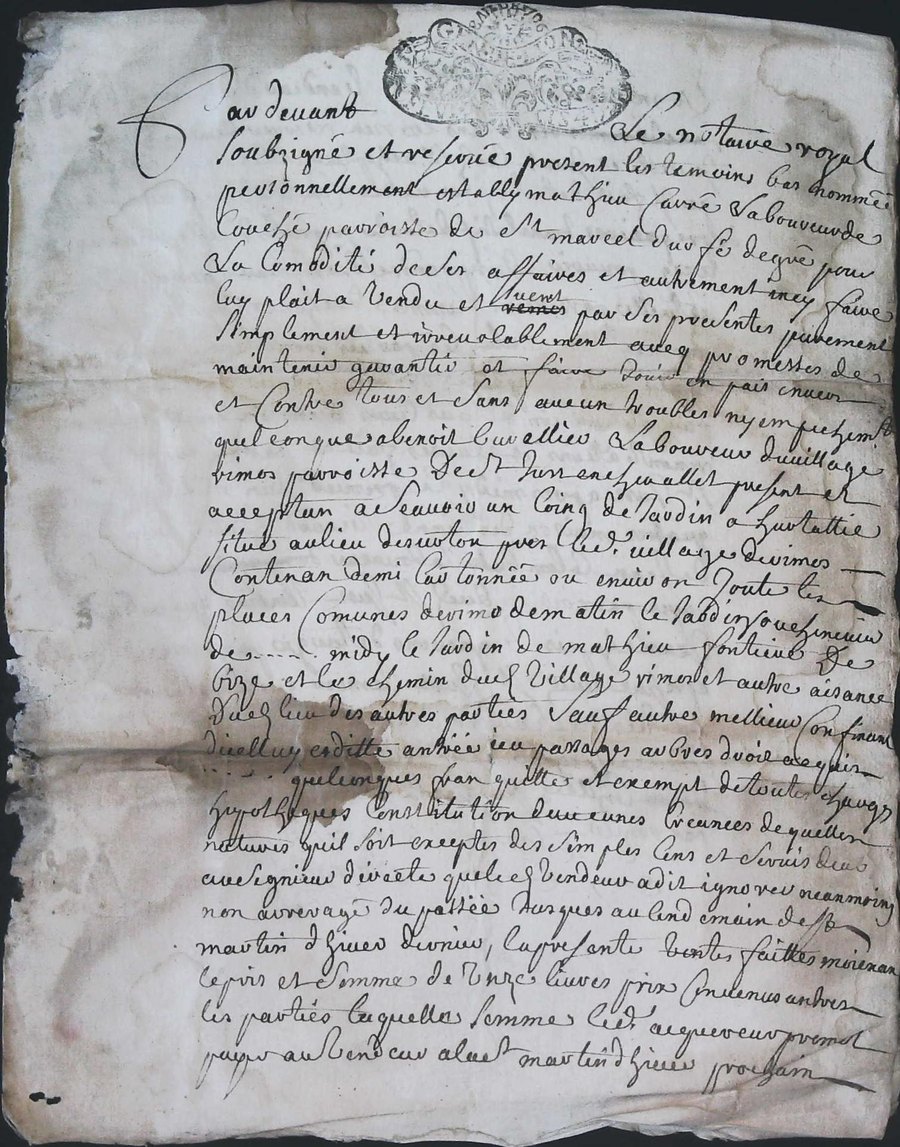 Par devant Le notaire royal
soubzigné et reservé present les temoins bas nommée
personnellement estably mathieu Carré Laboureur de
Couché parroisse de St marcel Durfé de gré pour
La Comodité de ses affaires et autrement
luy plait a vendu et par ses presentes purement
simplement et irrevolablement avecq promesses de
maintenir garantir et faire jouir en paix envers
et Contre tous et sans aucun troubles ny empechemt
quelconque a benoit Cavallier Laboureur du village
vimos parroisse De St present et
acceptan a Scavoir un Coing de Jardin a
situé au lieu desuoton pres Led. village de vimos
Contenan demi Cartonnée ou environ Joute les
places Comunes de vimo de matin le Jardin
de ..... midy le Jardin de mathieu De
bize et le chemin dud village vimos et autre aisance
Dud lieu des autres parties Sauf autre mellieur Confinant
dicelluy entrée passages arbres droit acquis
...... quelconques fran quitte et exempt de toutes charges
hypotheques Constitution daucunes Creances de quelles
natures quil soit exceptes des simples Cens et servis deus
au seignieur directe quel led vendeur a dit ignorer neanmoing
non arreragé du passée Jusques au lendemain de St
martin dhiver dernier, la presente vente faittes moienan
le pris et somme de unze livres prix Convenus antres
les parties laquelle somme led. acquereur promet
payer au vendeur a la St martin dhiver prochain